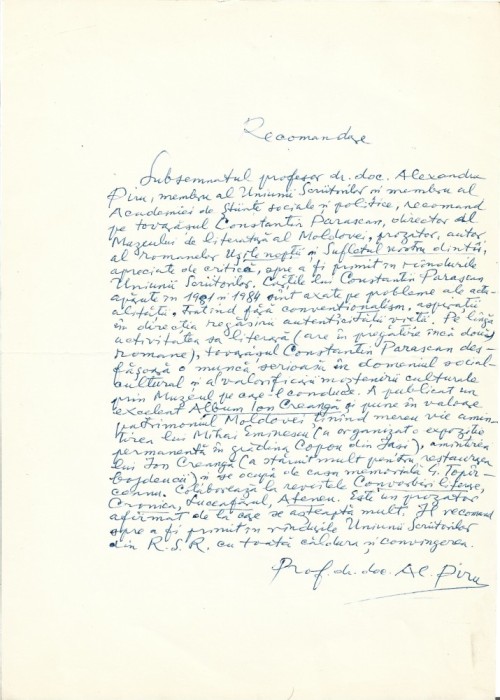 Recomandare
Subsemnatul profesor dr. doc. Alexandru
Piru, membru al Uniunii Scriitorilor și membru al
Academiei de Științe sociale și politice, recomand
pe tovarășul Constantin Parascan, director al
Muzeului de literatură al Moldovei, prozator, autor
al romanelor Ușile nopții și Sufletul nostru dintîi,
apreciate de critică, spre a fi primit în rîndurile
Uniunii Scriitorilor. Cărțile lui Constantin Parascan,
apărute în 1981 și 1984 sînt axate pe probleme ale actu-
alității, tratînd fără convenționalism, aspecte
în direcția regăsirii autenticității vieții. Pe lîngă
activitatea sa literară (are în pregătire încă două
romane), tovarășul Constantin Parascan des-
fășoară o muncă serioasă în domeniul social-
cultural și a valorificării moștenirii culturale
prin Muzeul pe care-l conduce. A publicat un
excelent Album Ion Creangă și pune în valoare
patrimoniul Moldovei ținînd mereu vie amin-
tirea lui Mihai Eminescu (a organizat o expoziție
permanentă în grădina Copou din Iași), amintirea
lui Ion Creangă (a stăruit mult pentru restaurarea
bojdeucii) și se ocupă de casa memorială G. Topîr-
ceanu. Colaborează la revistele Convorbiri literare,
Cronica, Luceafărul, Ateneu. Este un prozator
afirmat de la care se așteaptă mult. Îl recomand
spre a fi primit în rîndurile Uniunii Scriitorilor
din R.S.R. cu toată căldura și convingerea.
Prof. dr. doc. Al. Piru